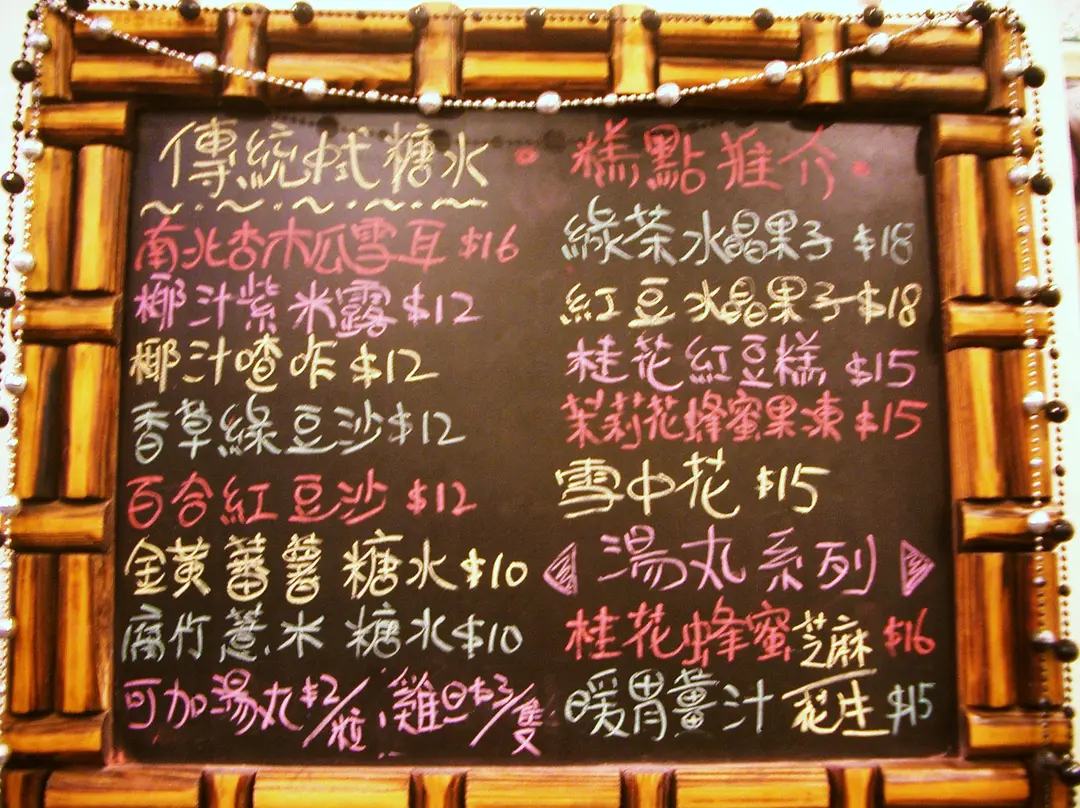 傳統中式糖水
南北杏木瓜雪耳 $16
椰汁紫米露 $12
椰汁喳咋 $12
香草綠豆沙 $12
百合紅豆沙 $12
金黃蕃薯糖水 $10
腐竹薏米糖水 $10
可加湯丸$2/粒, 雞旦$3/隻
糕點推介
綠茶水晶果子 $18
紅豆水晶果子 $18
桂花紅豆糕 $15
茉莉花蜂蜜果凍 $15
雪中花 $15
湯丸系列
桂花蜂蜜芝麻 $16
暖胃薑汁花生 $15